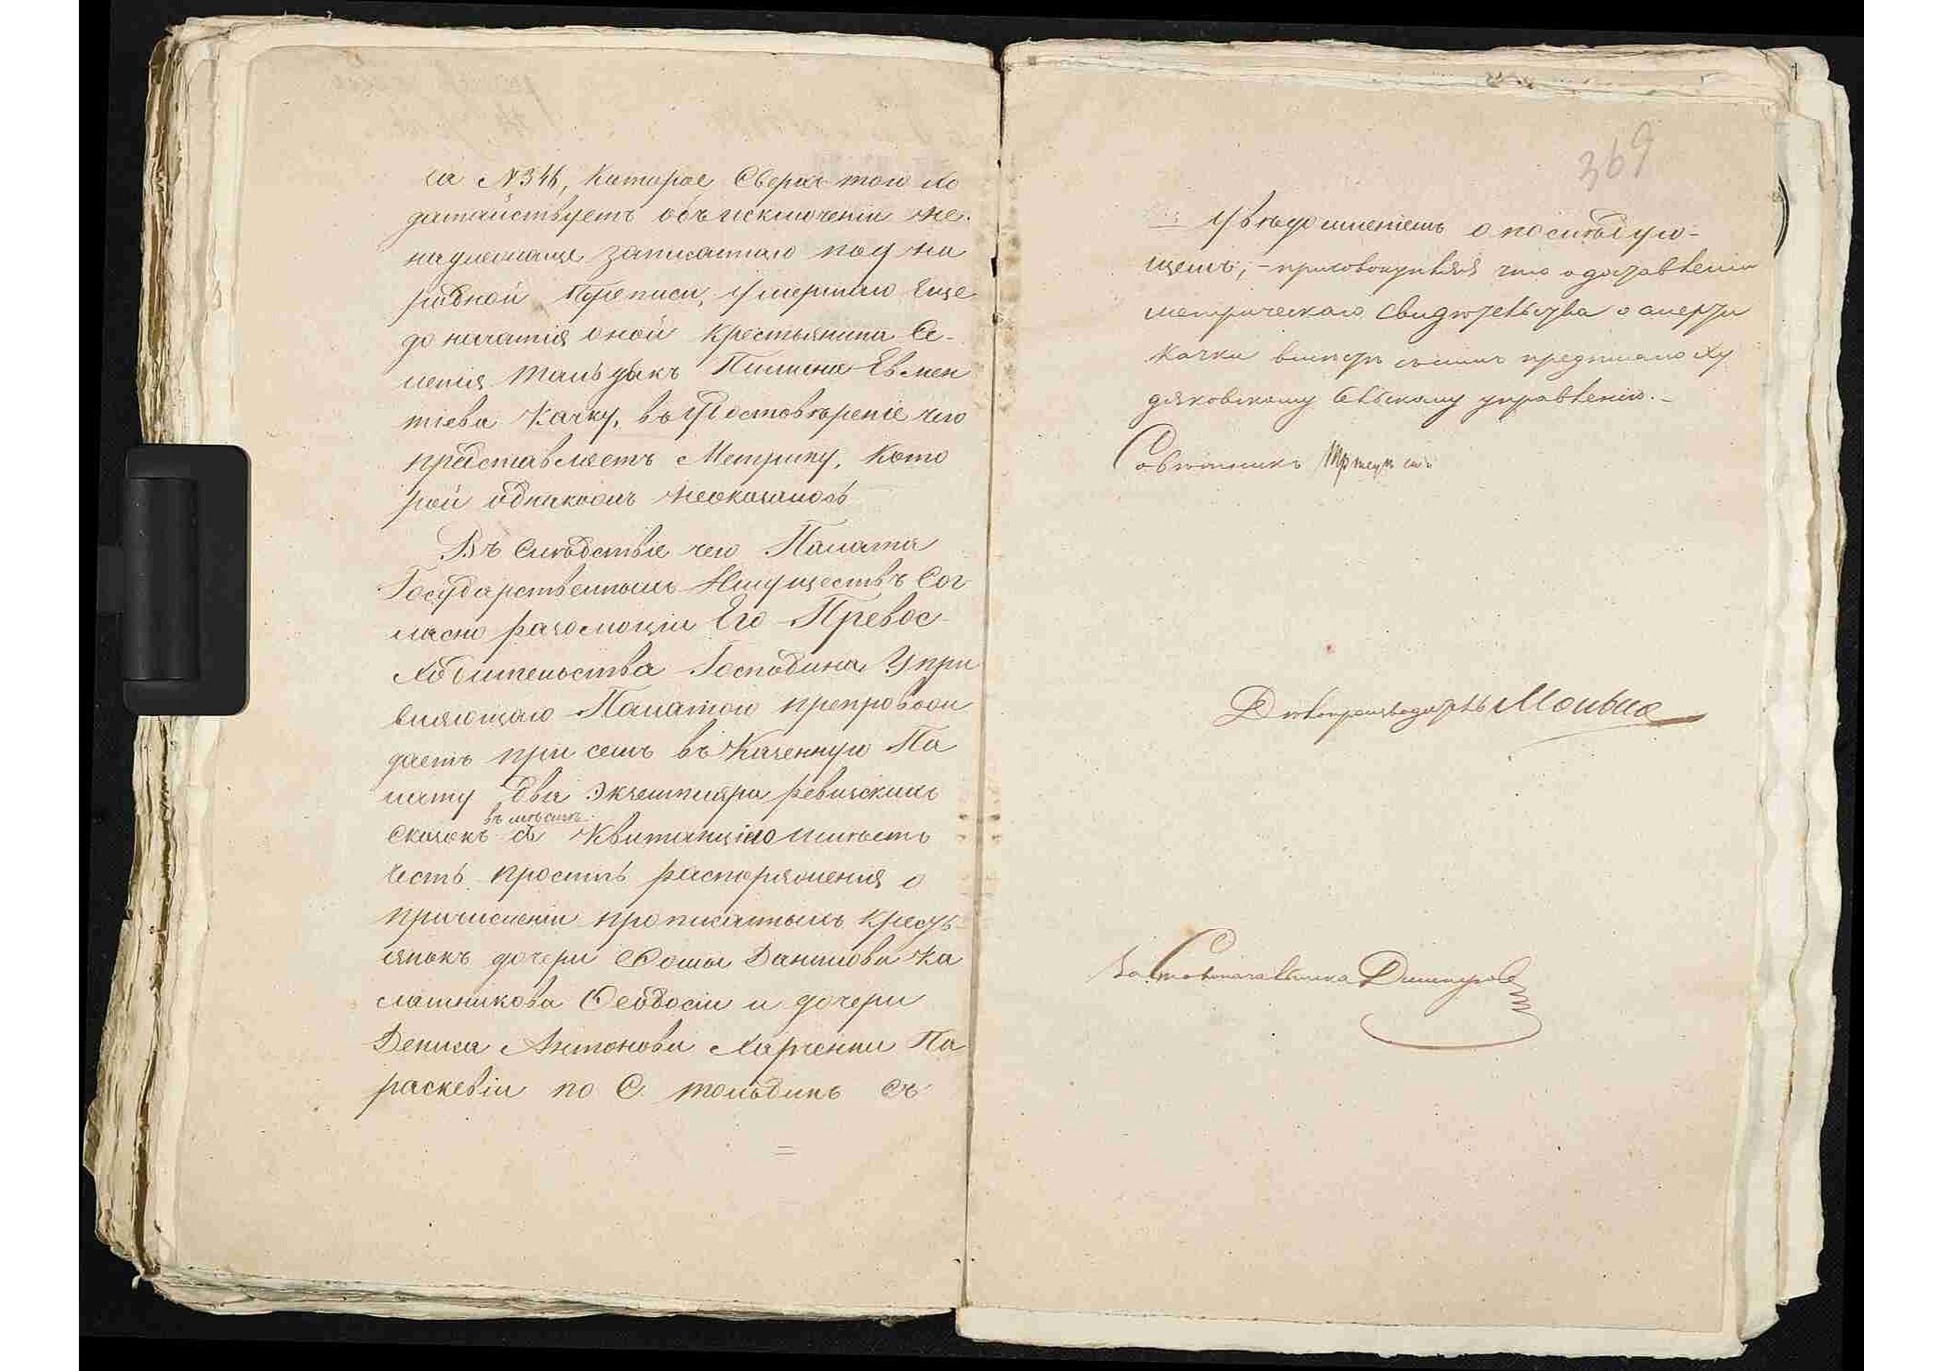 за №346, которое Сверхъ того хо
датайствуетъ объ исключеніи не-
надлежаще записаннаго подъ на
родной Переписи, умершаго еще
до начатія оной крестьянина Се-
ленія Тальдыкъ Пимина Евмен
тіева Качку, въ Удостовѣреніе чего
представляетъ Метрику, кото
рой однакожъ неоказалось
Въ Слѣдствіе чего Палата
Государственныхъ Имуществъ Сог
ласно резолюціи Его Превос
ходительства Господина Упра
вляющаго Палатою препровож
даетъ при семъ въ Казенную Па
лату два экземпляра ревизскихъ
въ мѣстѣ
сказокъ съ Квитанціею имѣетъ
честь просить распоряженія о
причисленіи прописанныхъ крест
янокъ дочери Фомы Данилова Ка
лашникова Феодосіи и дочери
Дениса Антонова Харченки Па
раскевіи по С. Тальдикъ съ
369
Увѣдомленіемъ о послѣдую-
щемъ, - присовокупляя что о доставленіи
метрическаго свидѣтельства о смерти
Качки вмѣстѣ съ симъ предписано Ху
дяковскому Сельскому управленію. -
Совѣтникъ
Дѣлопроизводитель
За Столоначальника Дмитровъ